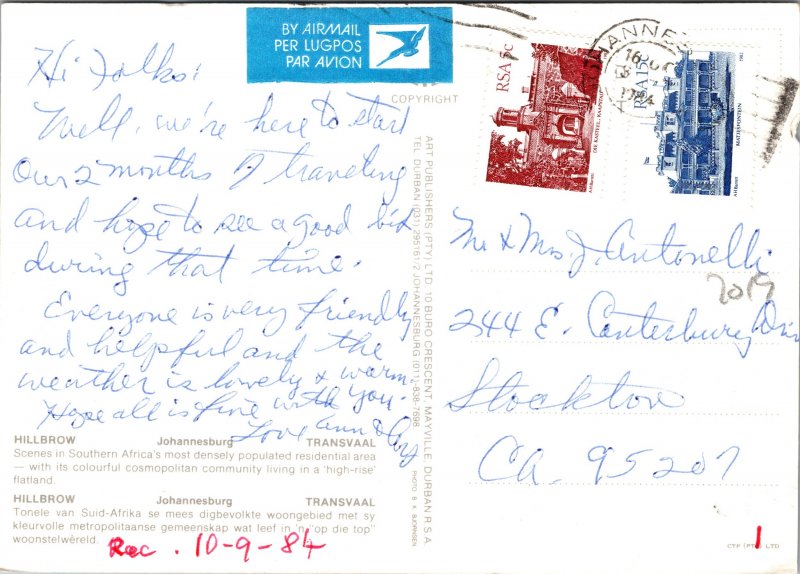 BY AIRMAIL
PER LUGPOS
PAR AVION
COPYRIGHT
Hi Folks:
Well, we're here to start
our 2 months of traveling
and hope to see a good bit
during that time.
Everyone is very friendly
and helpful and the
weather is lovely & warm.
Hope all is fine with you.
Love Ann &
HILLBROW Johannesburg TRANSVAAL
Scenes in Southern Africa's most densely populated residential area
— with its colourful cosmopolitan community living in a 'high-rise'
flatland.
HILLBROW Johannesburg TRANSVAAL
Tonele van Suid-Afrika se mees digbevolkte woongebied met sy
kleurvolle metropolitaanse gemeenskap wat leef in 'n "op die top"
woonstelwêreld.
Rec. 10-9-84
ART PUBLISHERS (PTY) LTD. 10 BURO CRESCENT, MAYVILLE DURBAN R.S.A.
TEL. DURBAN (031) 295161/2 JOHANNESBURG (011)-838-7698
PHOTO: B. K. BJORNSEN
RSA 5c
DIE KASTEEL, KAAPSTAD
RSA 15c
MATJIESFONTEIN
1982
1984
Mr & Mrs. J. Antonelli
2019
244 E. Canterbury
Stockton
CA. 95207
1
CTP (PTY) LTD